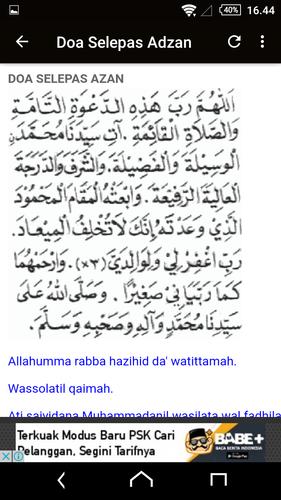 40% 16.44
Doa Selepas Adzan
DOA SELEPAS AZAN
اَللّٰهُمَّ رَبَّ هَذِهِ الدَّعْوَةِ التَّامَّةِ
وَالصَّلَاةِ الْقَائِمَةِ. آتِ سَيِّدَنَا مُحَمَّدَنِ
الْوَسِيْلَةَ وَالْفَضِيْلَةَ. وَالشَّرَفَ وَالدَّرَجَةَ
الْعَالِيَةَ الرَّفِيْعَةَ. وَابْعَثْهُ الْمَقَامَ الْمَحْمُوْدَ
الَّذِيْ وَعَدْتَهُ إِنَّكَ لَا تُخْلِفُ الْمِيْعَادَ.
رَبِّ اغْفِرْ لِيْ وَلِوَالِدَيَّ (×٣). وَارْحَمْهُمَا
كَمَا رَبَّيَانِيْ صَغِيْرًا. وَصَلَّى اللهُ عَلَى
سَيِّدِنَا مُحَمَّدٍ وَآلِهِ وَصَحْبِهِ وَسَلَّمَ.
Allahumma rabba hazihid da' watittamah.
Wassolatil qaimah.
Ati saividana Muhammadanil wasilata wal fadhila
Terkuak Modus Baru PSK Cari
Pelanggan, Segini Tarifnya
BABE+
BACA BERITA INDONESIA